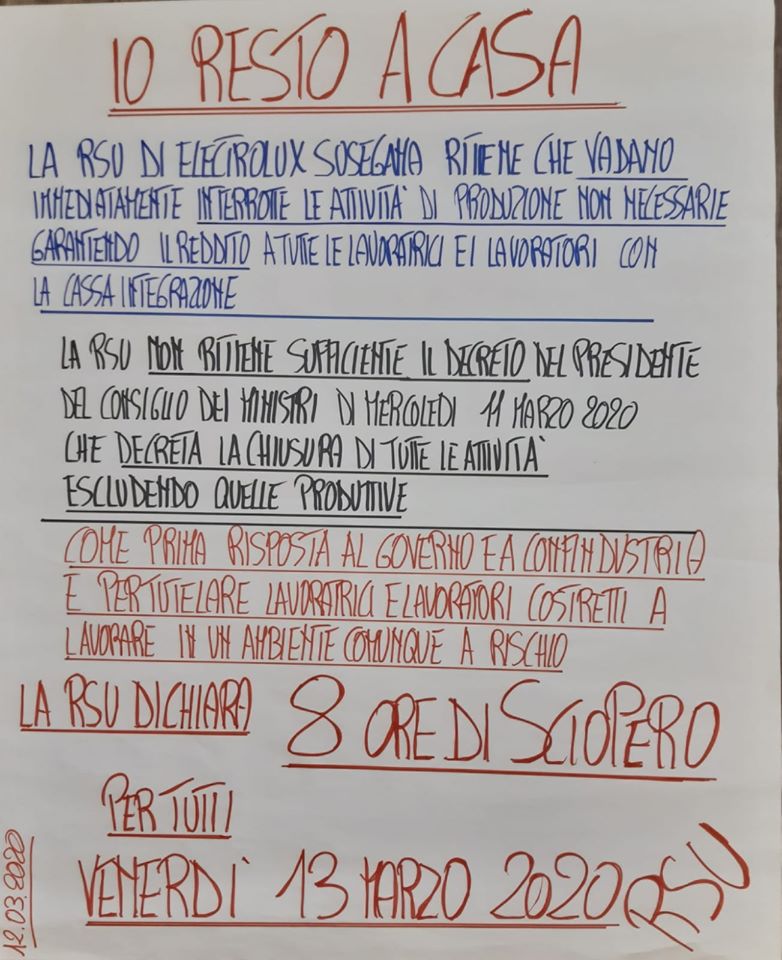 IO RESTO A CASA
LA RSU DI ELECTROLUX SUSEGANA RITIENE CHE VADANO
IMMEDIATAMENTE INTERROTTE LE ATTIVITA' DI PRODUZIONE NON NECESSARIE
GARANTENDO IL REDDITO A TUTTE LE LAVORATRICI E I LAVORATORI CON
LA CASSA INTEGRAZIONE
LA RSU NON RITIENE SUFFICIENTE IL DECRETO DEL PRESIDENTE
DEL CONSIGLIO DEI MINISTRI DI MERCOLEDI 11 MARZO 2020
CHE DECRETA LA CHIUSURA DI TUTTE LE ATTIVITA'
ESCLUDENDO QUELLE PRODUTTIVE
COME PRIMA RISPOSTA AL GOVERNO E A CONFINDUSTRIA
E PER TUTELARE LAVORATRICI E LAVORATORI COSTRETTI A
LAVORARE IN UN AMBIENTE COMUNQUE A RISCHIO
LA RSU DICHIARA 8 ORE DI SCIOPERO
PER TUTTI
VENERDI' 13 MARZO 2020
RSU
12.03.2020